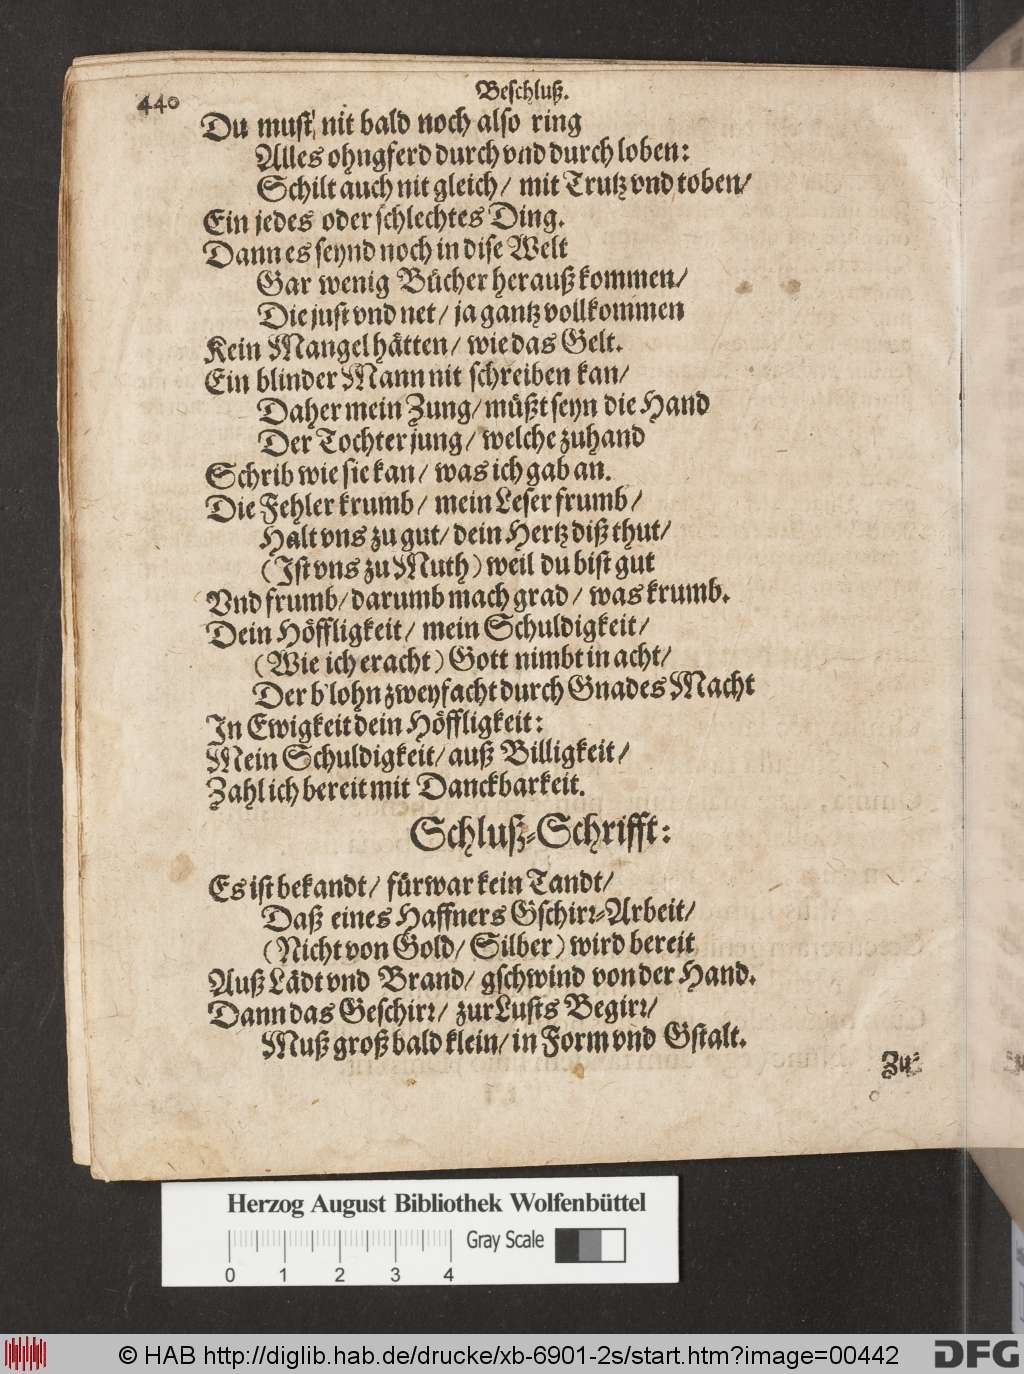 440
Beschluß.
Du must nit bald noch also ring
Alles ohngferd durch vnd durch loben:
Schilt auch nit gleich/ mit Trutz vnd toben/
Ein jedes oder schlechtes Ding.
Dann es seynd noch in dise Welt
Gar wenig Bücher herauß kommen/
Die just vnd net/ ja gantz vollkommen
Kein Mangel hätten/ wie das Gelt.
Ein blinder Mann nit schreiben kan/
Daher mein Zung/ müßt seyn die Hand
Der Tochter jung/ welche zuhand
Schrib wie sie kan/ was ich gab an.
Die Fehler krumb/ mein Leser frumb/
Halt vns zu gut/ dein Hertz diß thut/
(Ist vns zu Muth) weil du bist gut
Vnd frumb/ darumb mach grad/ was krumb.
Dein Höffligkeit/ mein Schuldigkeit/
(Wie ich eracht) Gott nimbt in acht/
Der b'lohn zweyfacht durch Gnades Macht
In Ewigkeit dein Höffligkeit:
Mein Schuldigkeit/ auß Billigkeit/
Zahl ich bereit mit Danckbarkeit.
Schluß-Schrifft:
Es ist bekandt/ fürwar kein Tandt/
Daß eines Haffners Gschirr-Arbeit/
(Nicht von Gold/ Silber) wird bereit
Auß Lädt vnd Brand/ gschwind von der Hand.
Dann das Geschirr/ zur Lusts Begirr/
Muß groß bald klein/ in Form vnd Gstalt.
Zu
Herzog August Bibliothek Wolfenbüttel
Gray Scale
0 1 2 3 4
© HAB http://diglib.hab.de/drucke/xb-6901-2s/start.htm?image=00442
DFG